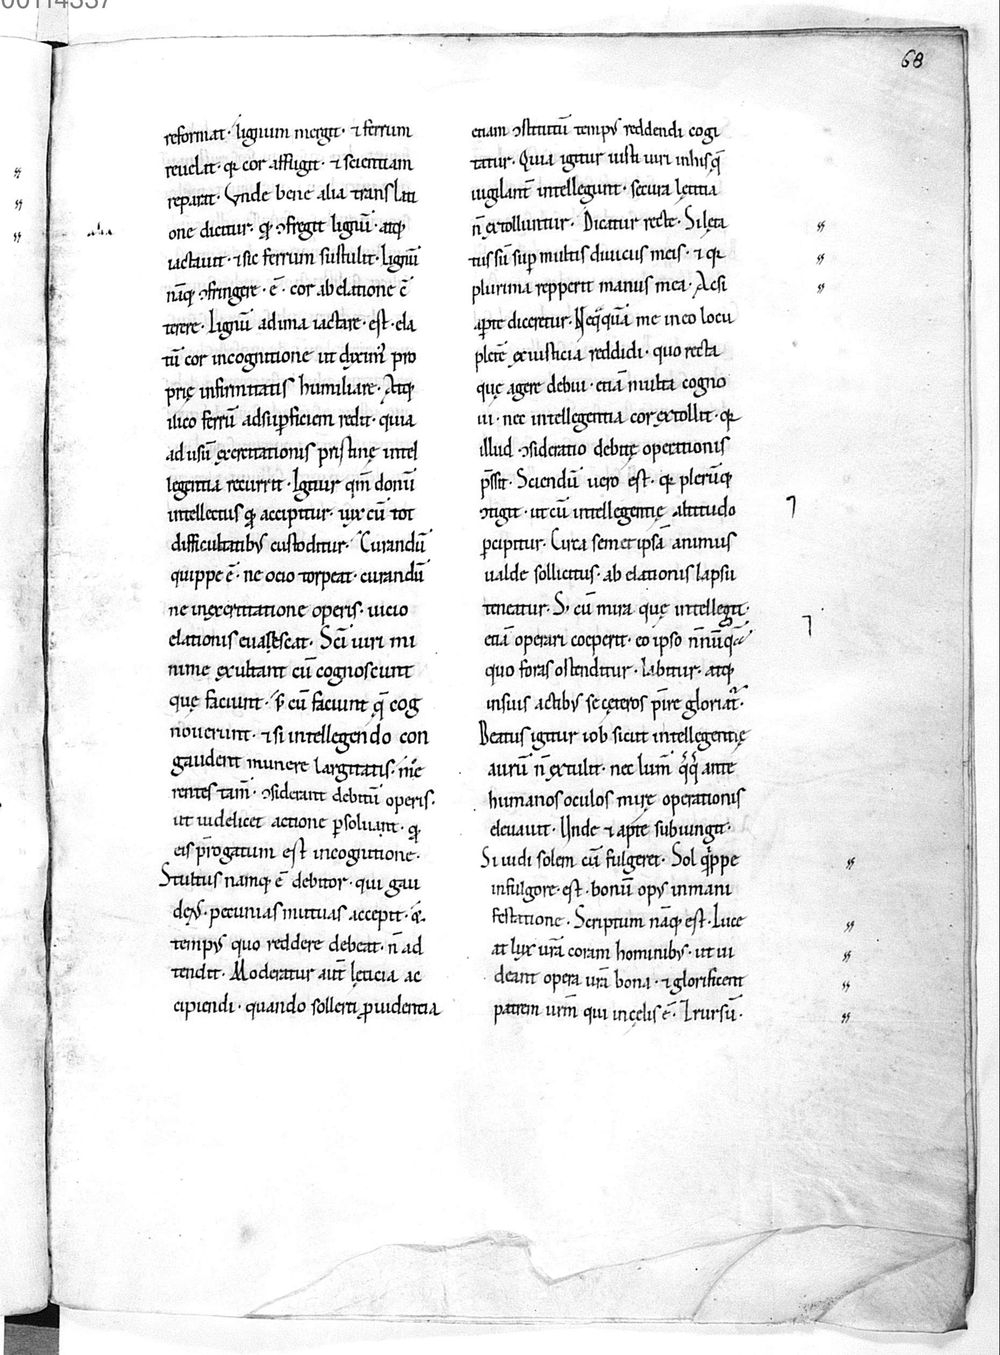 00114337
68
reformat · lignum mergit · ⁊ ferrum
reuelat · qꝛ cor affligit · ⁊ scientiam
reparat · Vnde bene alia translati
one dicitur · qꝫ ɔfregit lignū · atqꝫ
iactauit · ⁊ sic ferrum sustulit · lignū
nāqꝫ ɔfringere · ē · cor ab elatione c̄
terere · Lignū ad ima iactare · est · ela
tū cor in cognitione ut diximꝰ pro
prię infirmitatis humiliare · Atqꝫ
ilico ferrū ad supficiem redit · quia
ad usū exercitationis pristinę intel
legentia recurrit · Igitur qm̄ donū
intellectus qꝫ accipitur · uix cū tot
difficultatibꝰ custoditur · Curandū
quippe ē · ne ocio torpeat · curandū
ne in exercitatione operis · uicio
elationis euanescat · Sc̄i uiri mi
nime exultant cū cognoscunt
quę faciunt · s; cū faciunt q̄ cog
nouerunt · ⁊ si intellegendo con
gaudent munere largitatis · mę
rentes tam̄ · ɔsiderant debitū operis ·
ut uidelicet actione psoluant · qꝫ
eis p̄rogatum est in cognitione ·
Stultus namqꝫ ē debitor · qui gau
dens · pecunias mutuas accepit · &
tempꝰ quo reddere debeat · n̄ ad
tendit · Moderatur aut̄ lęticia ac
cipiendi · quando sollerti puidentia
etiam ɔstitutū tempꝰ reddendi cogi
tatur · Quia igitur iusti uiri in his q̄
uigilant̄ intellegunt · secura lętitia
n̄ extolluntur · Dicatur recte · Si lęta
tus sū sup multis diuiciis meis · ⁊ qꝛ
plurima repperit manus mea · Ac si
apte diceretur · Neq̄quā me in eo locu
pletē ex iusticia reddidi · quo recta
quę agere debui · etiā multa cogno
ui · nec intellegentia cor extollit · qꝛ
illud ɔsideratio debitę operationis
p̄ssit · Sciendū uero est · qꝛ plerūqꝫ
ɔtigit · ut cū intellegentię altitudo
pcipitur · Circa semet ipsā animus
ualde sollicitus · ab elationis lapsu
teneatur · S; cū mira quę intellegit ·
etiā operari coeperit · eo ipso nn̄nūquā
quo foras ostenditur · labitur · atqꝫ
in suis actibꝰ se cęteros p̄ire gloriat̄ ·
Beatus igitur iob sicut intellegentię
aurū n̄ extulit · nec lum̄ q̄q̄ ante
humanos oculos mirę operationis
eleuauit · Unde ⁊ apte subiungit ·
Si uidi solem cū fulgeret · Sol q̄ppe
in fulgore · est · bonū opꝰ in mani
festatione · Scriptum nāqꝫ est · Luce
at lux ur̄a coram hominibꝰ · ut ui
deant opera ur̄a bona · ⁊ glorificent
patrem urm̄ qui in cęlis ē · Irursū ·